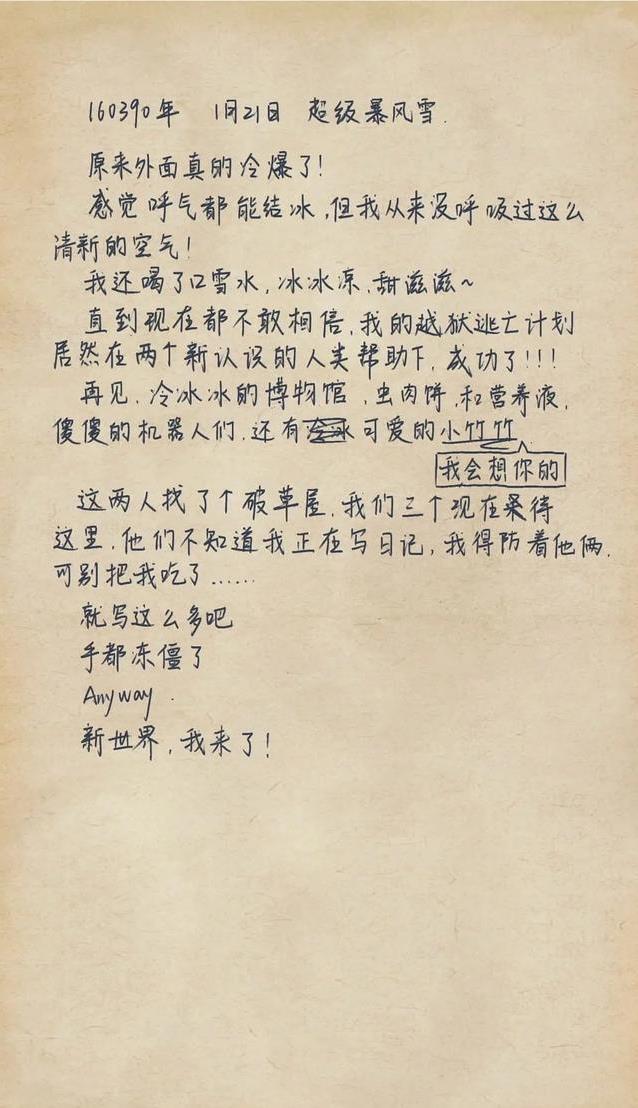 160390年 1月21日 超级暴风雪.
原来外面真的冷爆了!
感觉呼气都能结冰,但我从来没呼吸过这么
清新的空气!
我还喝了口雪水,冰冰凉、甜滋滋~
直到现在都不敢相信,我的越狱逃亡计划
居然在两个新认识的人类帮助下,成功了!!!
再见、冷冰冰的博物馆、虫肉饼、和营养液,
傻傻的机器人们、还有可爱的小竹竹
我会想你的
这两人找了个破草屋、我们三个现在呆待
这里、他们不知道我正在写日记,我得防着他俩、
可别把我吃了......
就写这么多吧
手都冻僵了
Anyway.
新世界,我来了!